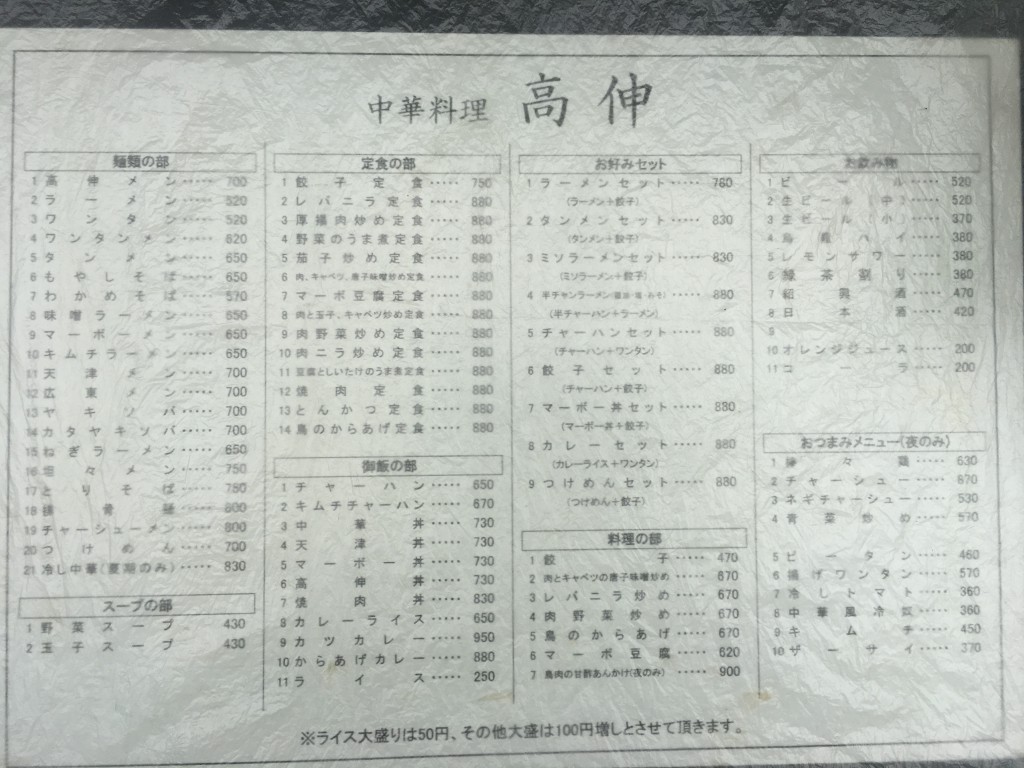 中華料理 高伸
麺類の部
1 高伸メン ····· 700
2 ラーメン ····· 520
3 ワンタン ····· 520
4 ワンタンメン ····· 620
5 タンメン ····· 650
6 もやしそば ····· 650
7 わかめそば ····· 570
8 味噌ラーメン ····· 650
9 マーボーメン ····· 650
10 キムチラーメン ····· 650
11 天津メン ····· 700
12 広東メン ····· 700
13 ヤキソバ ····· 700
14 カタヤキソバ ····· 700
15 ねぎラーメン ····· 650
16 坦々メン ····· 750
17 とりそば ····· 780
18 排骨麺 ····· 800
19 チャーシューメン ····· 800
20 つけめん ····· 700
21 冷し中華(夏期のみ) ····· 830
スープの部
1 野菜スープ 430
2 玉子スープ 430
定食の部
1 餃子定食 ····· 750
2 レバニラ定食 ····· 880
3 厚揚肉炒め定食 ····· 880
4 野菜のうま煮定食 ····· 880
5 茄子炒め定食 ····· 880
6 肉、キャベツ、唐子味噌炒め定食 ····· 880
7 マーボ豆腐定食 ····· 880
8 肉と玉子、キャベツ炒め定食 ····· 880
9 肉野菜炒め定食 ····· 880
10 肉ニラ炒め定食 ····· 880
11 豆腐としいたけのうま煮定食 ····· 880
12 焼肉定食 ····· 880
13 とんかつ定食 ····· 880
14 鳥のからあげ定食 ····· 880
御飯の部
1 チャーハン ····· 650
2 キムチチャーハン ····· 670
3 中華丼 ····· 730
4 天津丼 ····· 730
5 マーボー丼 ····· 730
6 高伸丼 ····· 730
7 焼肉丼 ····· 830
8 カレーライス ····· 650
9 カツカレー ····· 950
10 からあげカレー ····· 880
11 ライス ····· 250
お好みセット
1 ラーメンセット ····· 760
(ラーメン+餃子)
2 タンメンセット ····· 830
(タンメン+餃子)
3 ミソラーメンセット ····· 830
(ミソラーメン+餃子)
4 半チャンラーメン(醤油・塩・みそ) ····· 880
(半チャーハン+ラーメン)
5 チャーハンセット ····· 880
(チャーハン+ワンタン)
6 餃子セット ····· 880
(チャーハン+餃子)
7 マーボー丼セット ····· 880
(マーボー丼+餃子)
8 カレーセット ····· 880
(カレーライス+ワンタン)
9 つけめんセット ····· 880
(つけめん+餃子)
料理の部
1 餃子 ····· 470
2 肉とキャベツの唐子味噌炒め ····· 670
3 レバニラ炒め ····· 670
4 肉野菜炒め ····· 670
5 鳥のからあげ ····· 670
6 マーボ豆腐 ····· 620
7 鳥肉の甘酢あんかけ(夜のみ) ····· 900
お飲み物
1 ビール ····· 520
2 生ビール(中) ····· 520
3 生ビール(小) ····· 370
4 烏龍ハイ ····· 380
5 レモンサワー ····· 380
6 緑茶割り ····· 380
7 紹興酒 ····· 470
8 日本酒 ····· 420
9
10 オレンジジュース ····· 200
11 コーラ ····· 200
おつまみメニュー(夜のみ)
1 棒々鶏 ····· 630
2 チャーシュー ····· 670
3 ネギチャーシュー ····· 530
4 青菜炒め ····· 570
5 ピータン ····· 460
6 揚げワンタン ····· 570
7 冷しトマト ····· 360
8 中華風冷奴 ····· 360
9 キムチ ····· 450
10 ザーサイ ····· 370
※ライス大盛りは50円、その他大盛は100円増しとさせて頂きます。